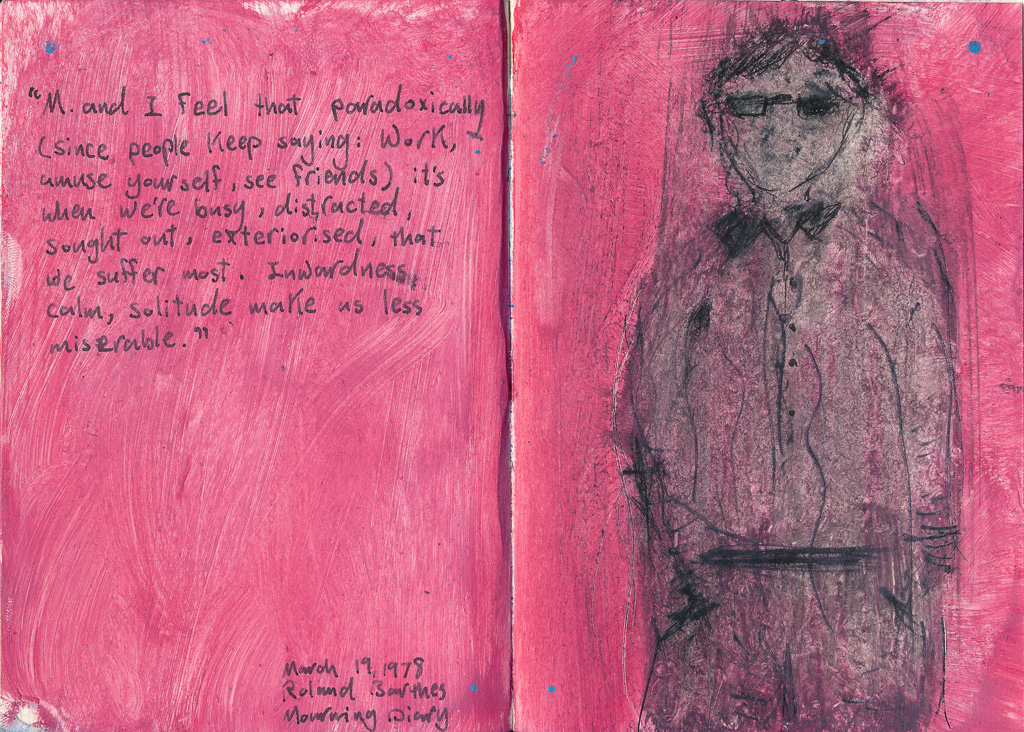 "M. and I Feel that paradoxically
(since people Keep saying: Work,
amuse yourself, see friends) it's
when we're busy, distracted,
sought out, exteriorised, that
we suffer most. Inwardness,
calm, solitude make us less
miserable."
March 19, 1978
Roland Barthes
Mourning Diary